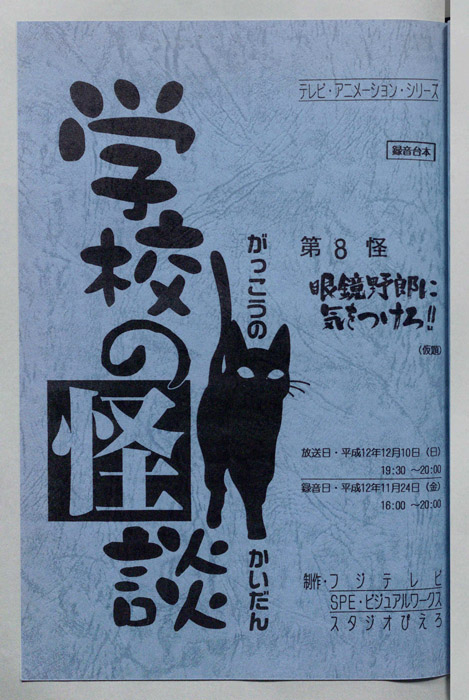 テレビ・アニメーション・シリーズ
録音台本
学校の怪談
がっこうの かいだん
第8怪
眼鏡野郎に
気をつけろ!!
(仮題)
放送日・平成12年12月10日(日)
19:30 ~20:00
録音日・平成12年11月24日(金)
16:00 ~20:00
制作・フジテレビ
SPE・ビジュアルワークス
スタジオぴえろ